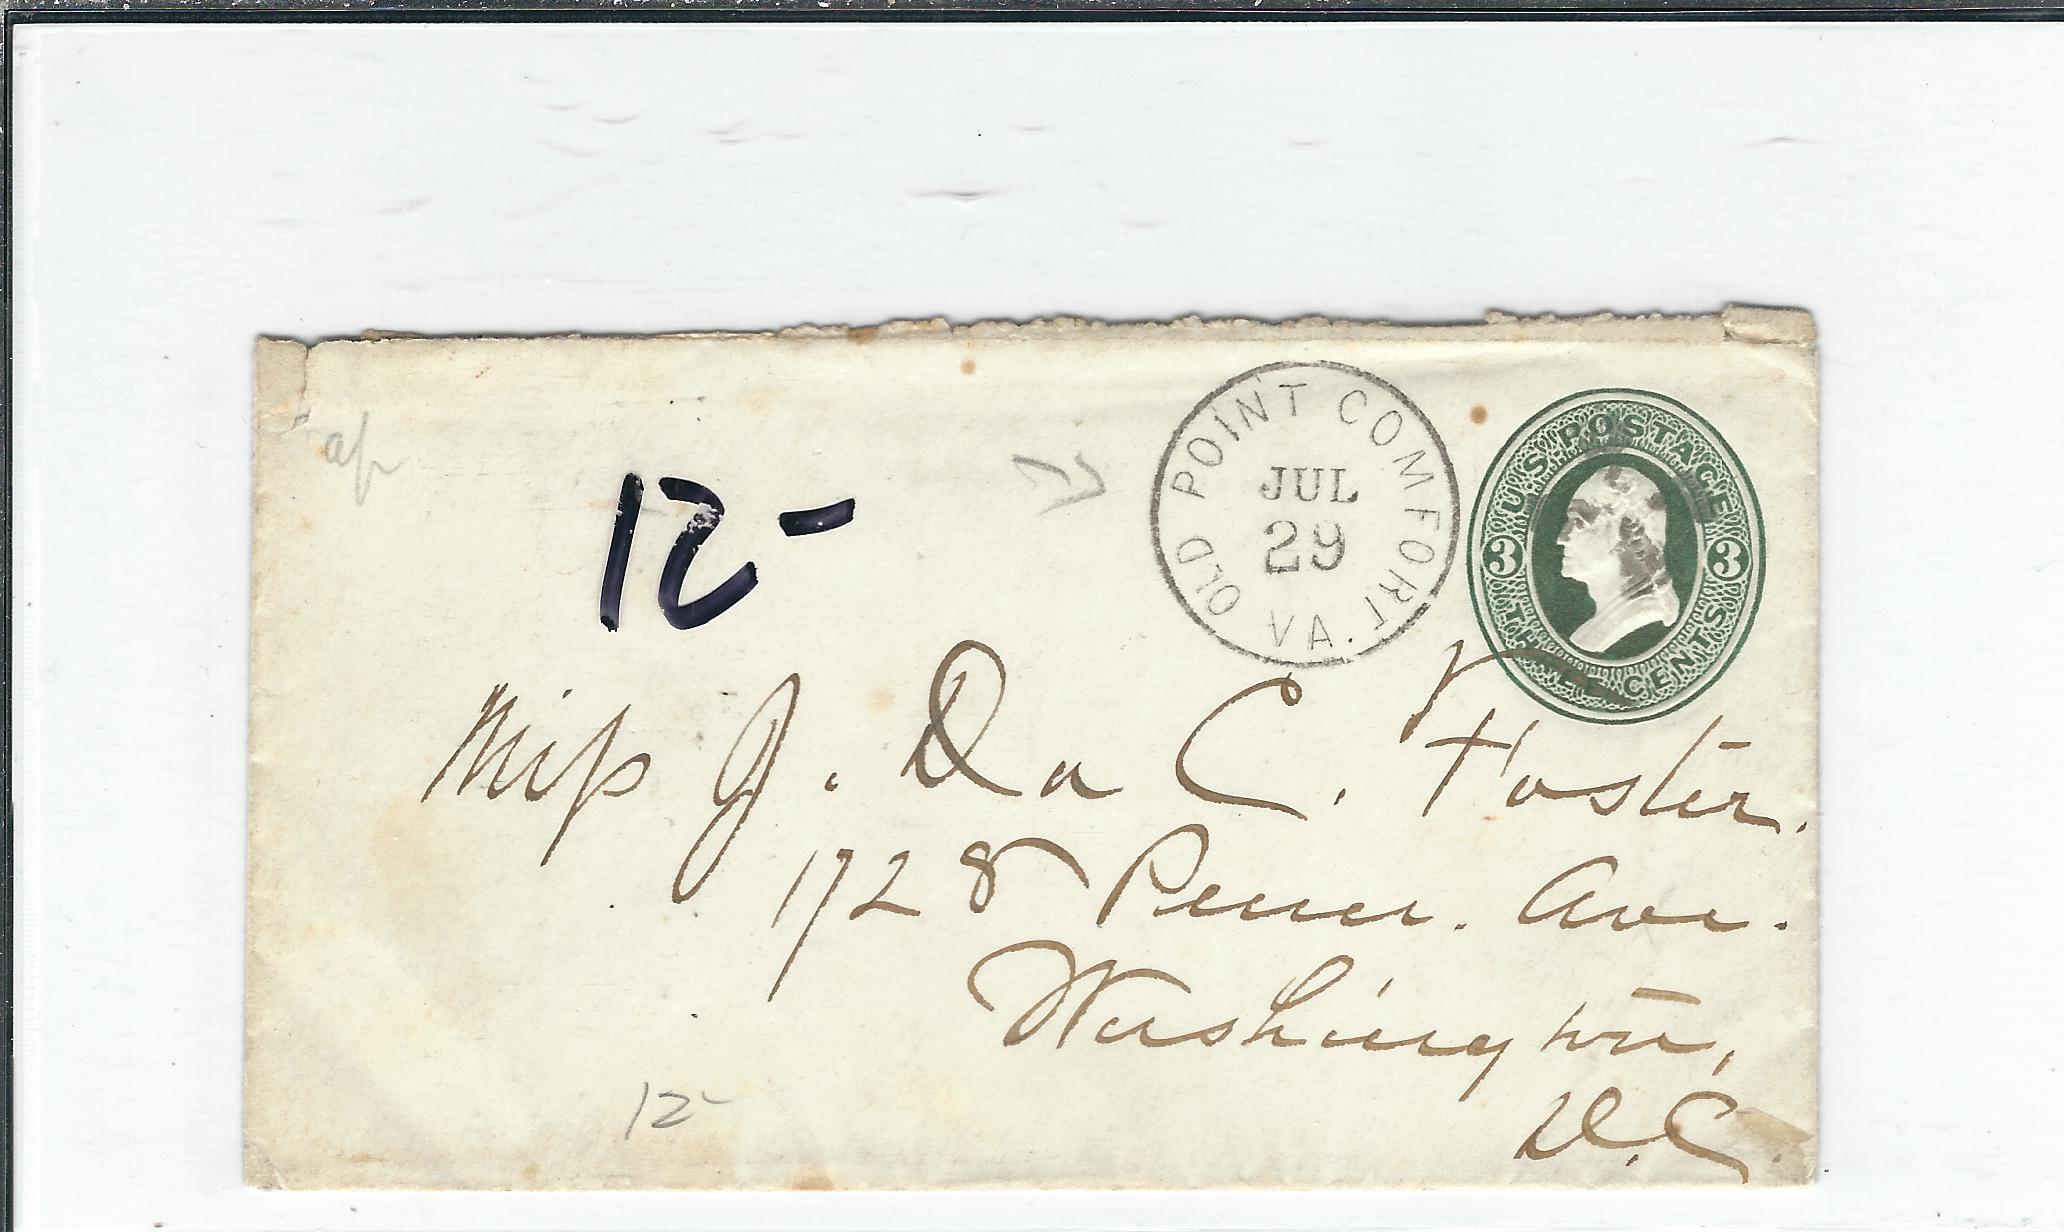 OLD POINT COMFORT
VA.
JUL
29
U.S. POSTAGE
3 3
THREE CENTS
12-
Miss J. Da C. Foster.
1728 Penn. Ave.
Washington,
D.C.
12-